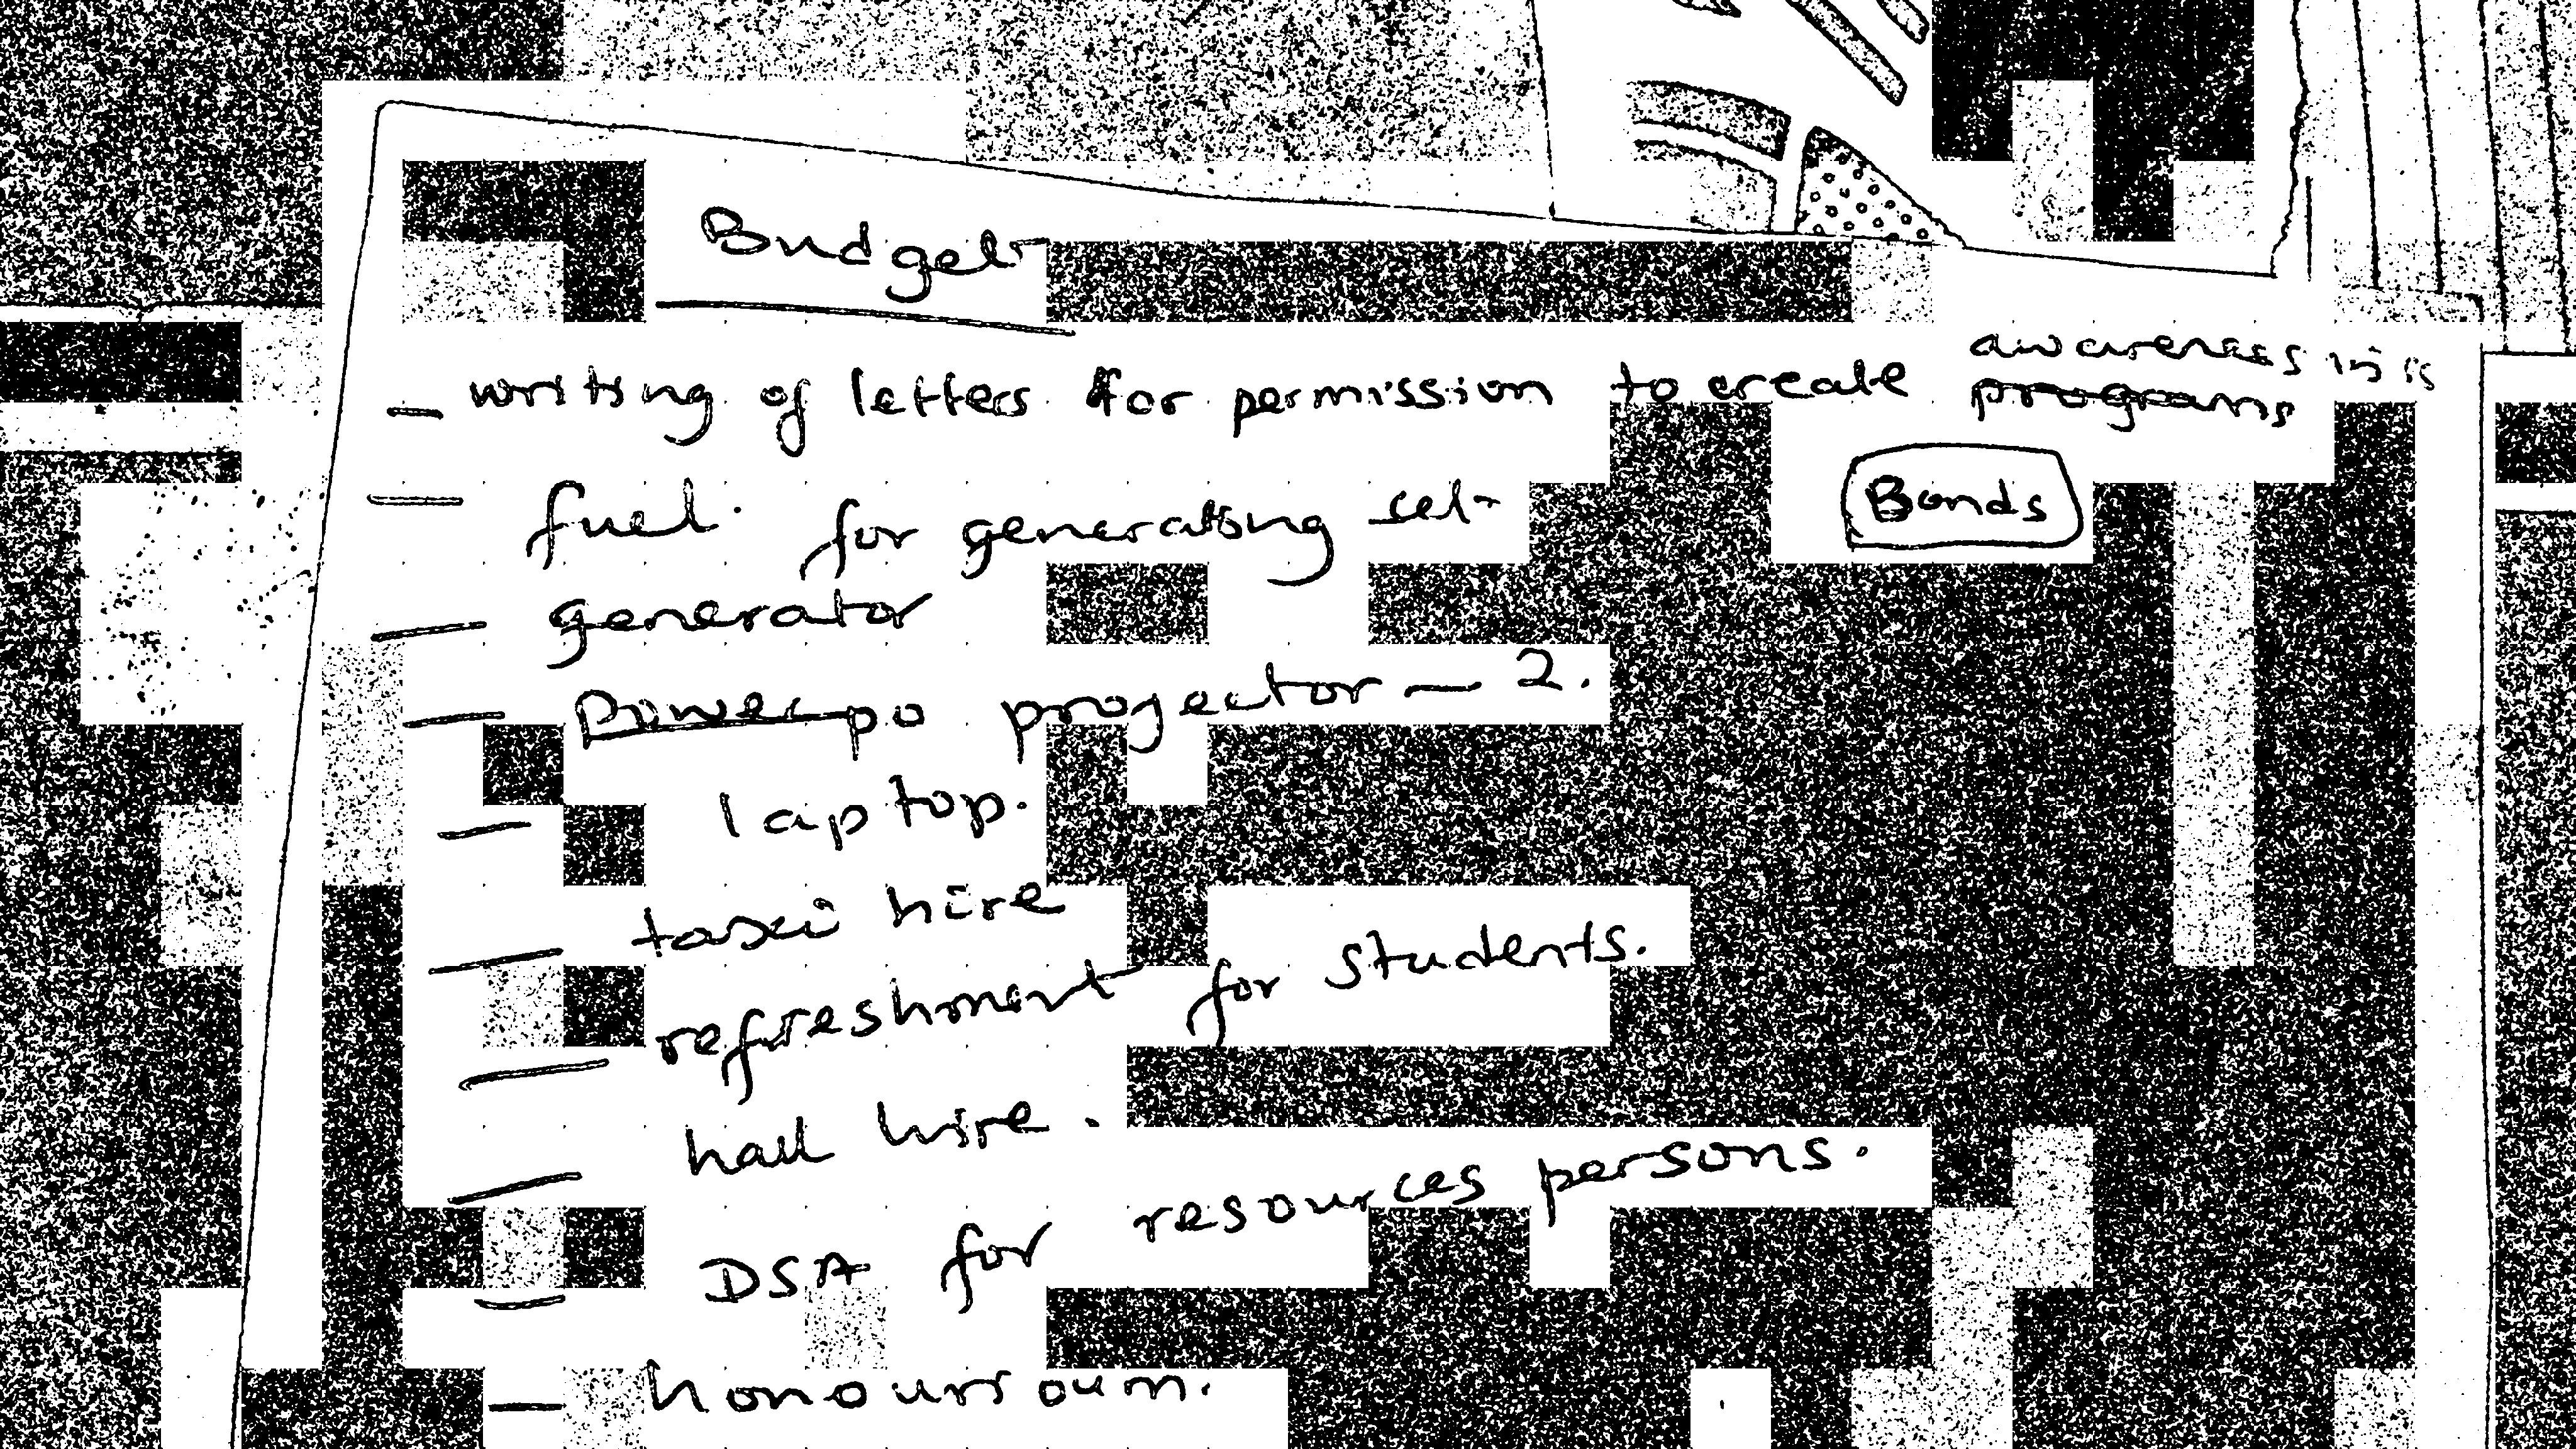 Budget
awareness in
— writing of letters for permission to create programs
Bonds
— fuel. for generating set
— generator
— Powerpo projector — 2.
— laptop.
— taxi hire
— refreshment for students.
— hall hire.
— DSA for resources persons.
— honourroum.